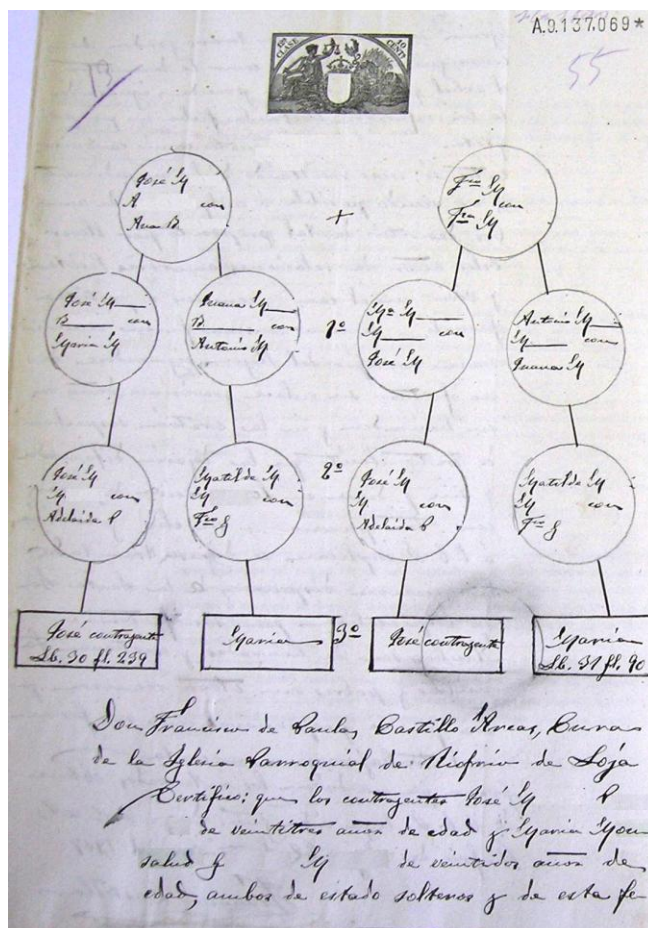 A.9.137.069*
CLASE
10
CENTS
55
José M
A con
Ana B.
+
Fco M
con
Fca M
José M
B con
María M
Juana M
B con
Antonio M
1º
Mª M
M con
José M
Antonio M
M con
Juana M
José M
M con
Adelaida P
Matilde M
M con
Fco G
2º
José M
M con
Adelaida P
Matilde M
M con
Fco G
José contrayente
Lb. 30 fl. 239
María
3º
José contrayente
María
Lb. 31 fl. 90
Don Francisco de Paula Castillo Arcas, Cura
de la Iglesia Parroquial de Riofrio de Loja
Certifico: que los contrayentes José M P
de veintitres años de edad y Maria Mon
salud G M de veintidos años de
edad, ambos de estado solteros y de esta fe